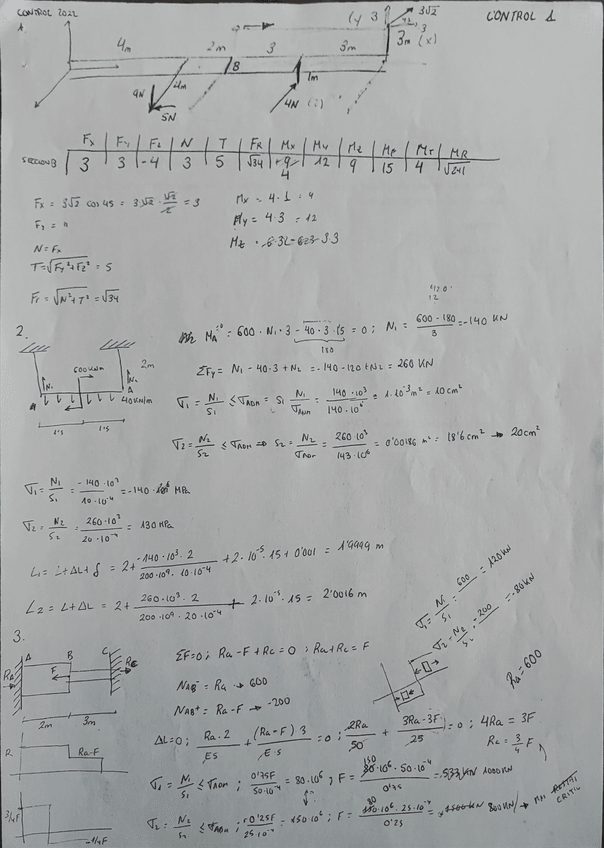 CONTROL 2022
CONTROL 1
1.
(y 3
3√2
3
3m (x)
4m
2m
3
3m
B
4m
1m
9N
5N
4N (i)
Fx Fy Fz N T FR Mx My Mz MF MT MR
SECCION B 3 3 -4 3 5 √34 4 12 9 15 4 √241
Fx = 3√2 cos 45 = 3√2 · √2/2 = 3
Mx = 4·1 = 4
My = 4·3 = 12
N = Fx
T = √(Fy² + Fz²) = 5
Fr = √(N² + T²) = √34
2.
MA = 600 - N1·3 - 40·3·1'5 = 0; N1 = (600-180)/3 = -140 KN
180
ΣFy = N1 - 40·3 + N2 = -140-120+N2 = 260 KN
600 KNm
2m
N1
N2
A
40KN/m
1'5
1'5
σ1 = N1/S1 ≤ σADM = S1 N1/σADM = 140·10³/140·10⁶ = 1·10⁻³ m² = 10 cm²
σ2 = N2/S2 ≤ σADM ⇒ S2 = N2/σADM = 260·10³/143·10⁶ = 0'00186 m² = 18'6 cm² → 20 cm²
σ1 = N1/S1 = -140·10³/10·10⁻⁴ = -140 MPa
σ2 = N2/S2 = 260·10³/20·10⁻⁴ = 130 MPa
L1 = L+ΔL+δ = 2 + -140·10³·2/200·10⁹·10·10⁻⁴ + 2·10⁻⁵·15 + 0'001 = 1'9999 m
L2 = L+ΔL = 2 + 260·10³·2/200·10⁹·20·10⁻⁴ + 2·10⁻⁵·15 = 2'0016 m
3.
A B C
RA
F
Rc
2m
3m
ΣF=0; Ra - F + Rc = 0; Ra + Rc = F
NAB⁻ = Ra → 600
NAB⁺ = Ra-F → -200
σ1 = N1/S1 = 600 = 120 KN
σ2 = N2/S2 = -200 = -80 KN
Ra = 600
ΔL=0; Ra·2/ES + (Ra-F)3/E·S = 0; 2Ra/50 + 3Ra-3F/25 = 0; 4Ra = 3F
Ra = 3/4 F
R
Ra-F
σ1 = N1/S1 ≤ σADM; 0'75F/50·10⁻⁴ = 80·10⁶; F = 150·10⁶·50·10⁻⁴/0'75 = 1000 KN
σ2 = N2/S2 ≤ σADM; 0'25F/25·10⁻⁴ = 150·10⁶; F = 80·10⁶·25·10⁻⁴/0'25 = 800 KN
3/4F
-1/4F